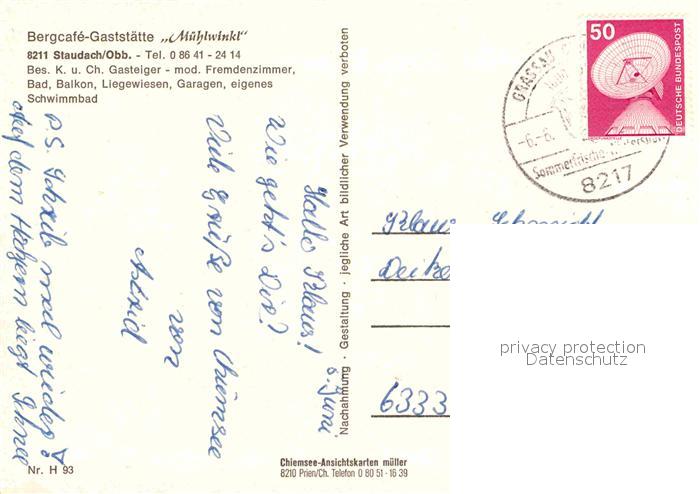 Bergcafé-Gaststätte „Mühlwinkl“
8211 Staudach/Obb. - Tel. 0 86 41 - 24 14
Bes. K. u. Ch. Gasteiger - mod. Fremdenzimmer,
Bad, Balkon, Liegewiesen, Garagen, eigenes
Schwimmbad
6. Juni
Hallo Klaus!
Wie geht's Dir?
Viele Grüße vom Chiemsee
von
Astrid
P.S. Schreib mal wieder!
Auf dem Hochgern liegt Schnee
Nr. H 93
Nachahmung · Gestaltung · jegliche Art bildlicher Verwendung verboten
Chiemsee-Ansichtskarten müller
8210 Prien/Ch. Telefon 0 80 51 - 16 39
50
DEUTSCHE BUNDESPOST
GRASSAU
-6.-6.
Sommerfrische
8217
Klaus Schmidt
6333
privacy protection
Datenschutz